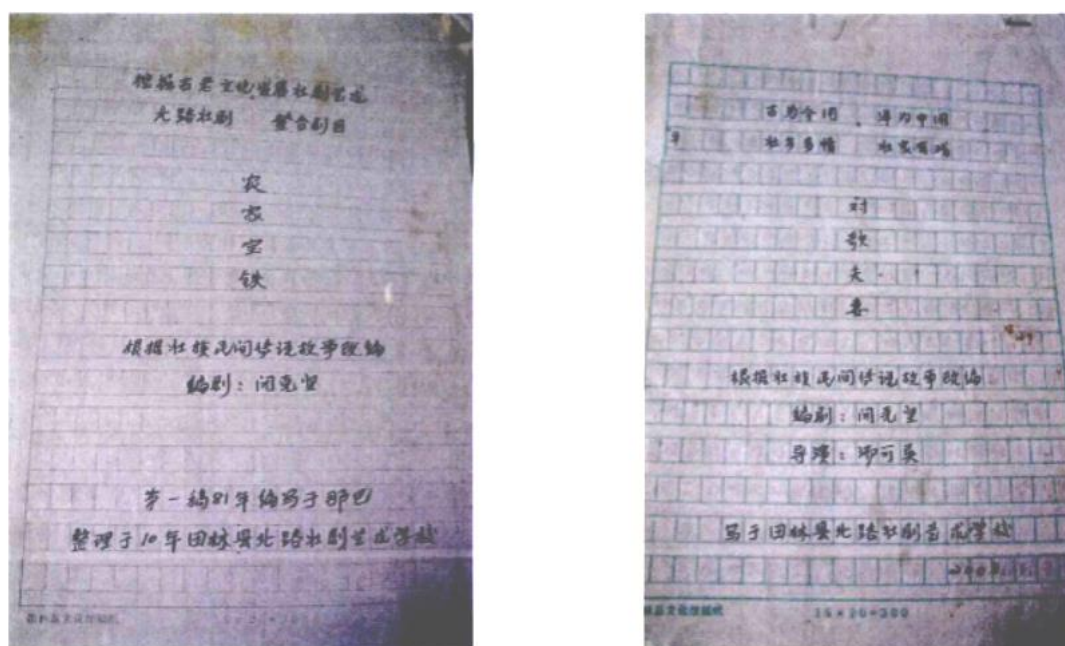 根据古老文化发展壮剧艺术
北路壮剧 整合剧目
农
家
宝
铁
根据壮族民间传说故事改编
编剧：闭克坚
第一稿81年编写于那巴
整理于10年田林县北路壮剧艺术学校
古为今用、洋为中用
壮乡多情
对
歌
夫
妻
根据壮族民间传说故事改编
编剧：闭克坚
导演：
写于田林县北路壮剧艺术学校
15×20=300